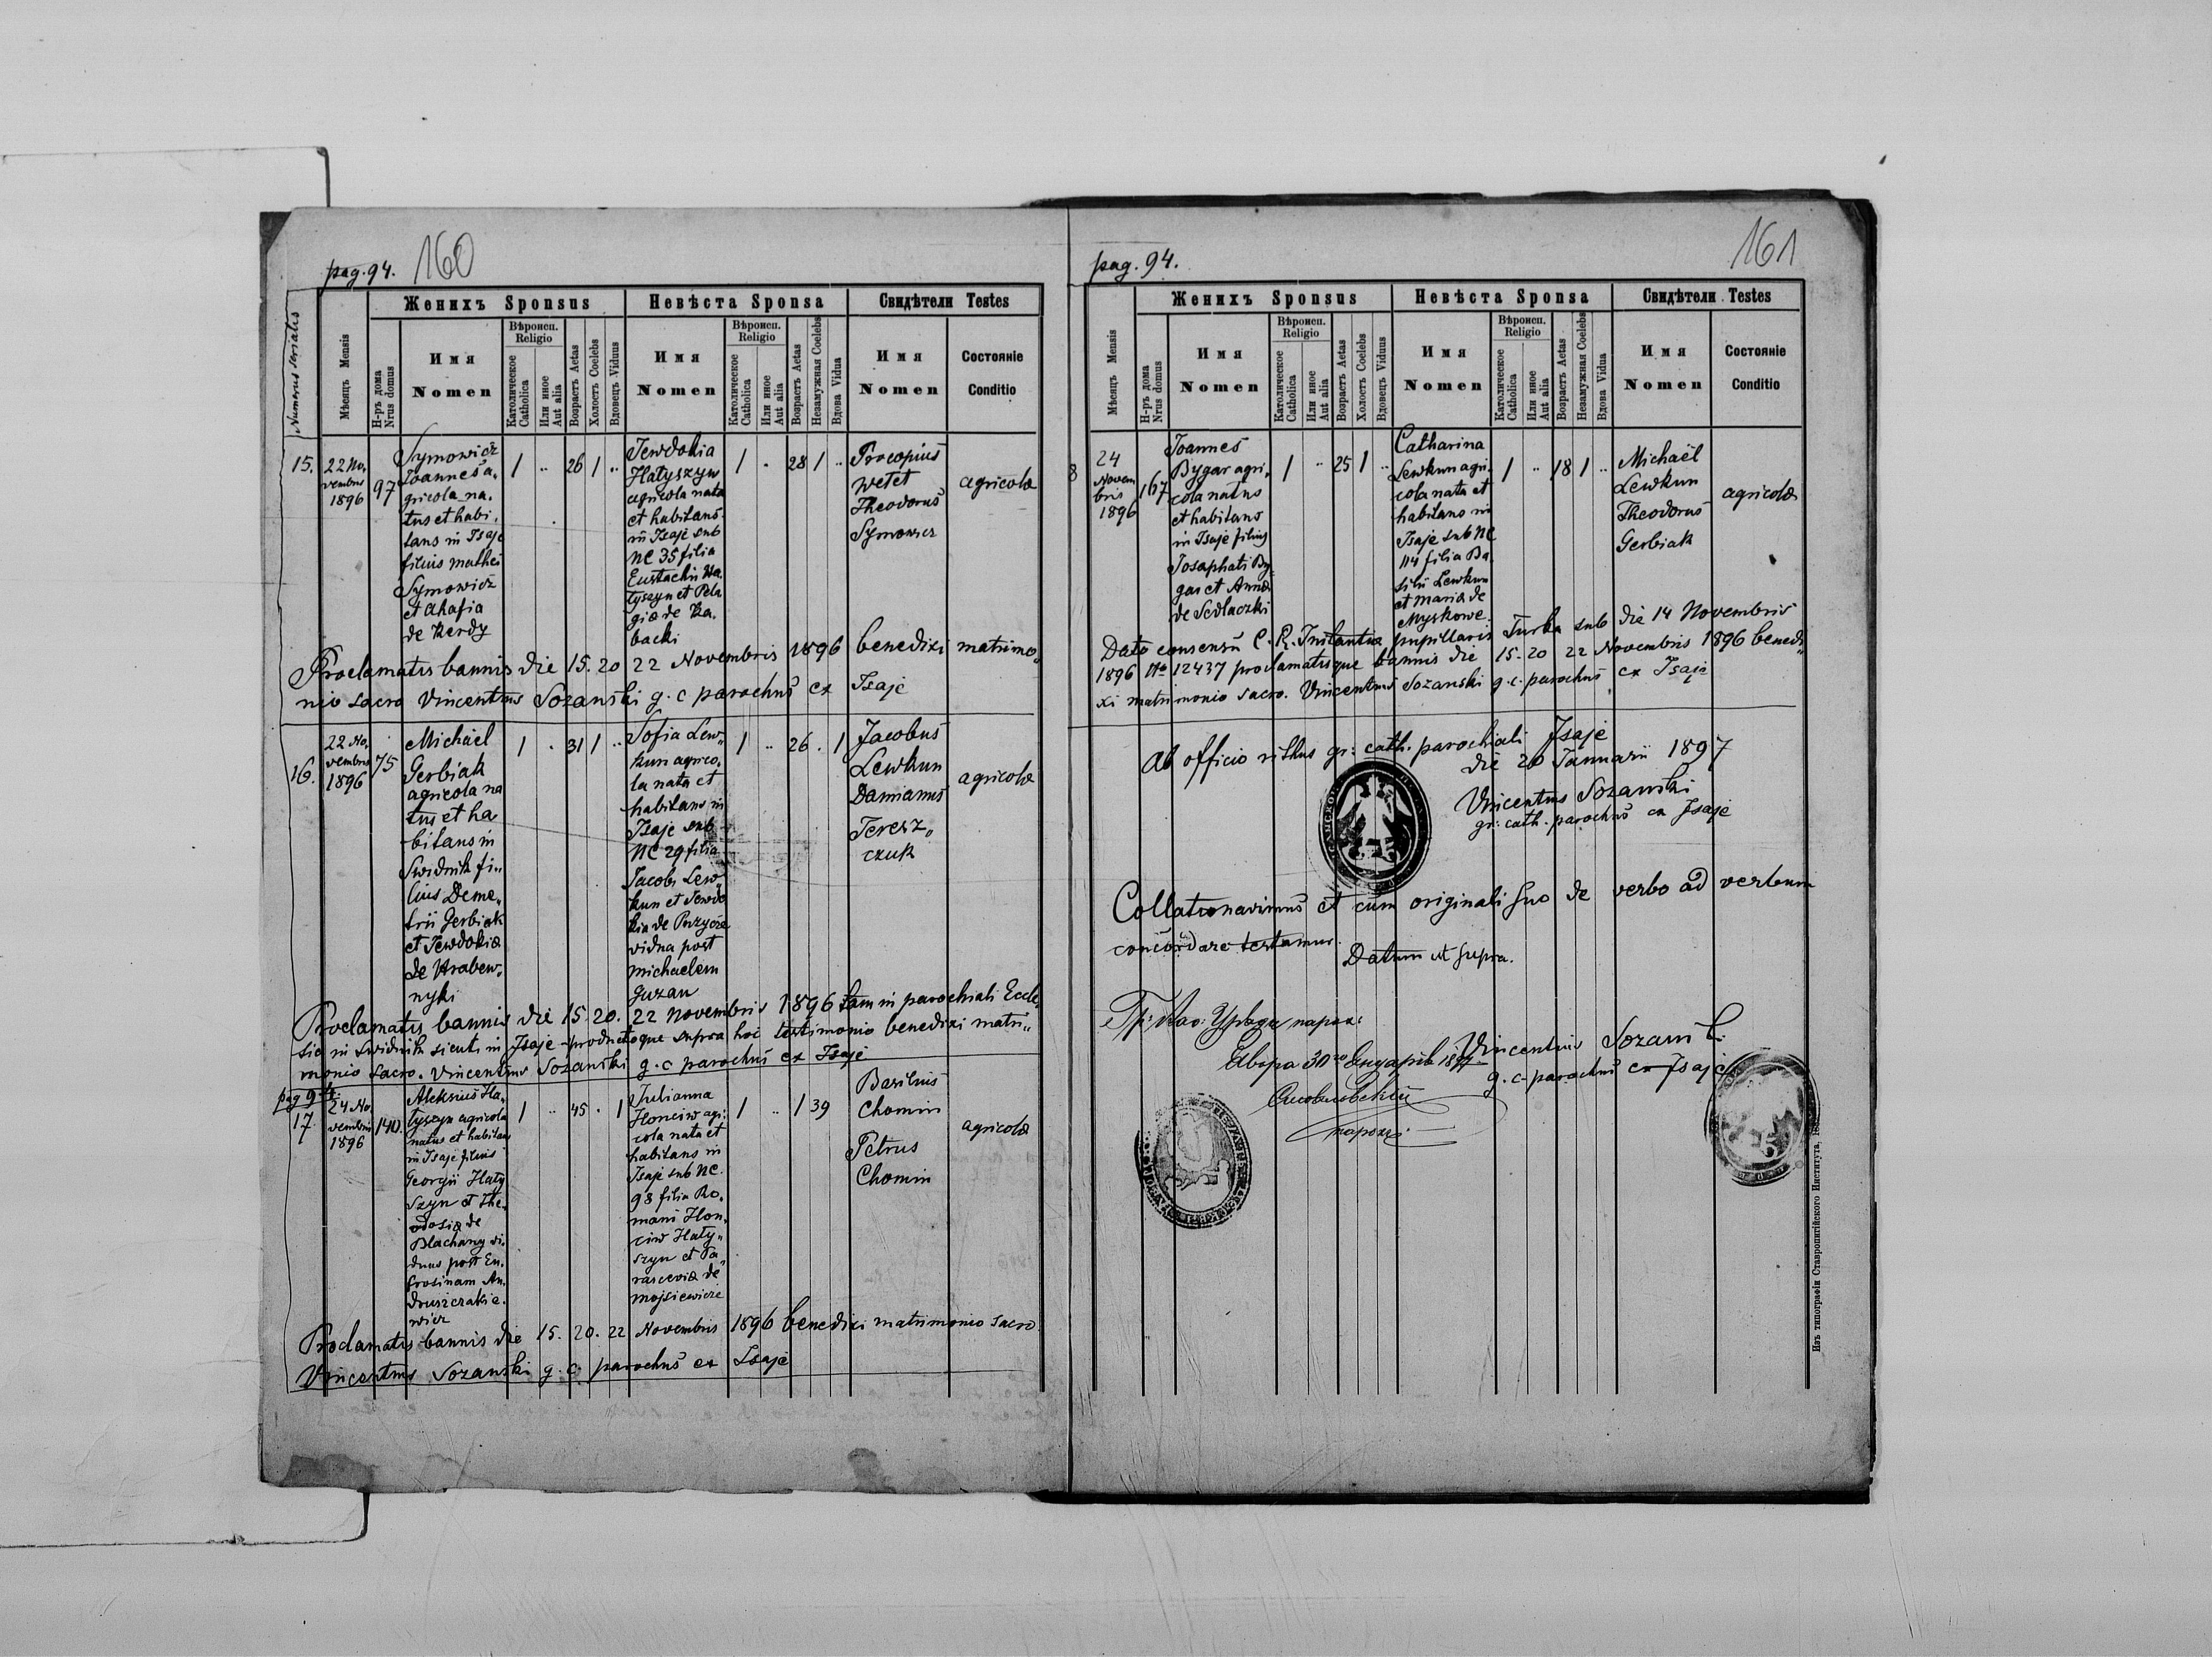 pag. 94. 160
Женихъ Sponsus
Невѣста Sponsa
Свидѣтели Testes
Numerus serialis
Мѣсяцъ Mensis
Н-ръ дома
Nrus domus
Имя
Nomen
Вѣроисп.
Religio
Католическое
Catholica
Или иное
Aut alia
Возрастъ Aetas
Холостъ Coelebs
Вдовецъ Viduus
Имя
Nomen
Вѣроисп.
Religio
Католическое
Catholica
Или иное
Aut alia
Возрастъ Aetas
Незамужная Coelebs
Вдова Vidua
Имя
Nomen
Состояніе
Conditio
15.
22 No,
vembris
1896
97
Symowicz
Joannes a,
gricola na,
tus et habi,
tans in Isaje
filius Mathei
Symowicz
et Ahafia
de Kerdy
1 .. 26 1 ..
Jewdokia
Hatyszyn
agricola nata
et habitans
in Isaje sub
NC 35 filia
Eustachii Ha,
tyszyn et Pela
giæ de Ka,
backi
1 . 28 1 ..
Procopius
Wetet
Theodorus
Symowicz
agricolæ
Proclamatis bannis die 15. 20 22 Novembris 1896 benedixi matrimo,
nio sacro Vincentius Sozanski g. c parochus ex Isaje
16.
22 No,
vembris
1896
75
Michael
Gerbiak
agricola na
tus et ha
bitans in
Swidnik fi,,
lius Deme,,
trii Gerbiak
et Jewdokiæ
de Hrabew,,
nyki
1 . 31 1 ..
Sofia Lew,,
kun agrico,
la nata et
habitans in
Isaje sub
NC 29 filia
Jacobi Lew,,
kun et Jewdo
kia de Puzycze
vidua post
Michaelem
Guzan
1 .. 26 . 1
Jacobus
Lewkun
Damianus
Teresz,,
czuk
agricolæ
Proclamatis bannis die 15. 20. 22 Novembris 1896 tam in parochiali Eccle,
sie in Swidnik sicuti in Isaje productoque supra hoc testimonio benedixi matri,,
monio sacro. Vincentius Sozanski g. c parochus ex Isaje
pag 94.
17.
24 No,
vembris
1896
140.
Aleksius Ha,
tyszyn agricola
natus et habitans
in Isaje filius
Georgii Haty
szyn et The,
odosiæ de
Blachany vi,
duus post Eu,
frosinam An,
druszczakie,
wicz
1 .. 45 . 1
Julianna
Honciw agri,
cola nata et
habitans in
Isaje sub NC.
98 filia Ro,
mani Hon,
ciw Haty,,
szyn et Pa,,
rasceviæ de
Mojsiewicze
1 .. 1 39
Basilius
Chomin
Petrus
Chomin
agricolæ
Proclamatis bannis die 15. 20. 22 Novembris 1896 benedixi matrimonio sacro
Vincentius Sozanski g. c. parochus ex Isaje
pag. 94. 161
Женихъ Sponsus
Невѣста Sponsa
Свидѣтели Testes
Мѣсяцъ Mensis
Н-ръ дома
Nrus domus
Имя
Nomen
Вѣроисп.
Religio
Католическое
Catholica
Или иное
Aut alia
Возрастъ Aetas
Холостъ Coelebs
Вдовецъ Viduus
Имя
Nomen
Вѣроисп.
Religio
Католическое
Catholica
Или иное
Aut alia
Возрастъ Aetas
Незамужная Coelebs
Вдова Vidua
Имя
Nomen
Состояніе
Conditio
8
24
Novem
bris
1896
167
Joannes
Bygar agri,
cola natus
et habitans
in Isaje filius
Josaphati By,
gar et Annæ
de Sedlaczki
1 .. 25 1 ..
Catharina
Lewkun agri,
cola nata et
habitans in
Isaje sub NC
114 filia Ba,
silii Lewkun
et Mariæ de
Myskowe
1 .. 18 1 ..
Michaël
Lewkun
Theodorus
Gerbiak
agricolæ
Dato consensu C. R. Instantia pupillaris Turka sub die 14 Novembris
1896 No 12437 proclamatisque bannis die 15. 20 22 Novembris 1896 benedi,,
xi matrimonio sacro. Vincentius Sozanski g. c. parochus ex Isaje
Ab officio ritus gr: cath. parochiali Isaje
die 20 Januarii 1897
Vincentius Sozanski
gr: cath. parochus ex Isaje
Collationavimus et cum originali suo de verbo ad verbum
concordare testamur.
Datum ut supra.
Гр: Као: Урядъ парох:
Явора 30го Януарія 1897
парохъ
Vincentius Sozanski
g. c. parochus ex Isaje
Изъ типографіи Ставропигійского Института,